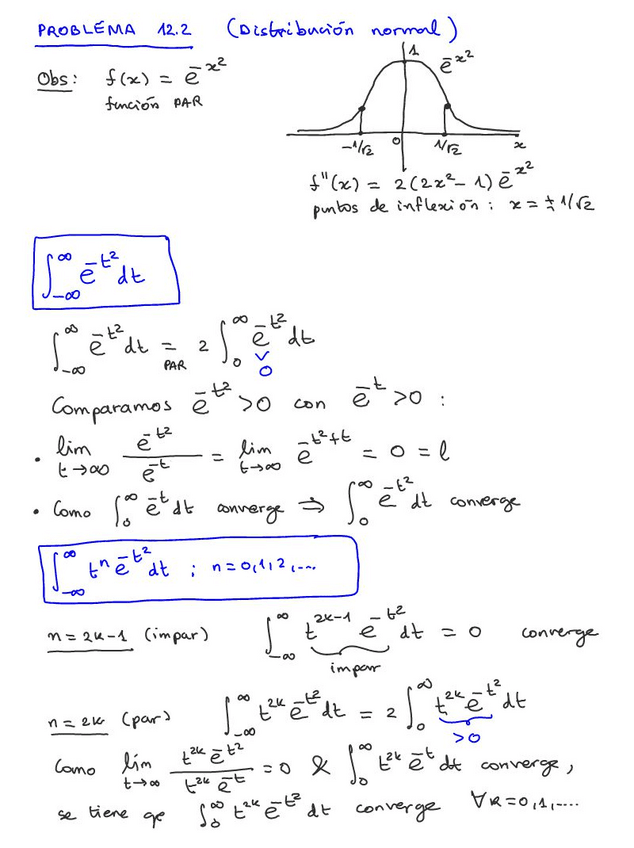 PROBLEMA 12.2 (Distribución normal)
Obs: f(x) = e^{-x^2}
función PAR
1
e^{-x^2}
-1/√2 0 1/√2 x
f''(x) = 2(2x^2 - 1) e^{-x^2}
puntos de inflexión: x = ± 1/√2
∫_{-∞}^{∞} e^{-t^2} dt
∫_{-∞}^{∞} e^{-t^2} dt = 2 ∫_0^∞ e^{-t^2} dt
PAR
∨
0
Comparamos e^{-t^2} > 0 con e^{-t} > 0 :
• lím_{t→∞} e^{-t^2} / e^{-t} = lím_{t→∞} e^{-t^2+t} = 0 = l
• Como ∫_0^∞ e^{-t} dt converge ⇒ ∫_0^∞ e^{-t^2} dt converge
∫_{-∞}^{∞} t^n e^{-t^2} dt ; n = 0, 1, 2, ....
n = 2k-1 (impar) ∫_{-∞}^{∞} t^{2k-1} e^{-t^2} dt = 0 converge
impar
n = 2k (par) ∫_{-∞}^{∞} t^{2k} e^{-t^2} dt = 2 ∫_0^∞ t^{2k} e^{-t^2} dt
>0
Como lím_{t→∞} t^{2k} e^{-t^2} / t^{2k} e^{-t} = 0 & ∫_0^∞ t^{2k} e^{-t} dt converge,
se tiene qe ∫_0^∞ t^{2k} e^{-t^2} dt converge ∀k = 0, 1, ....